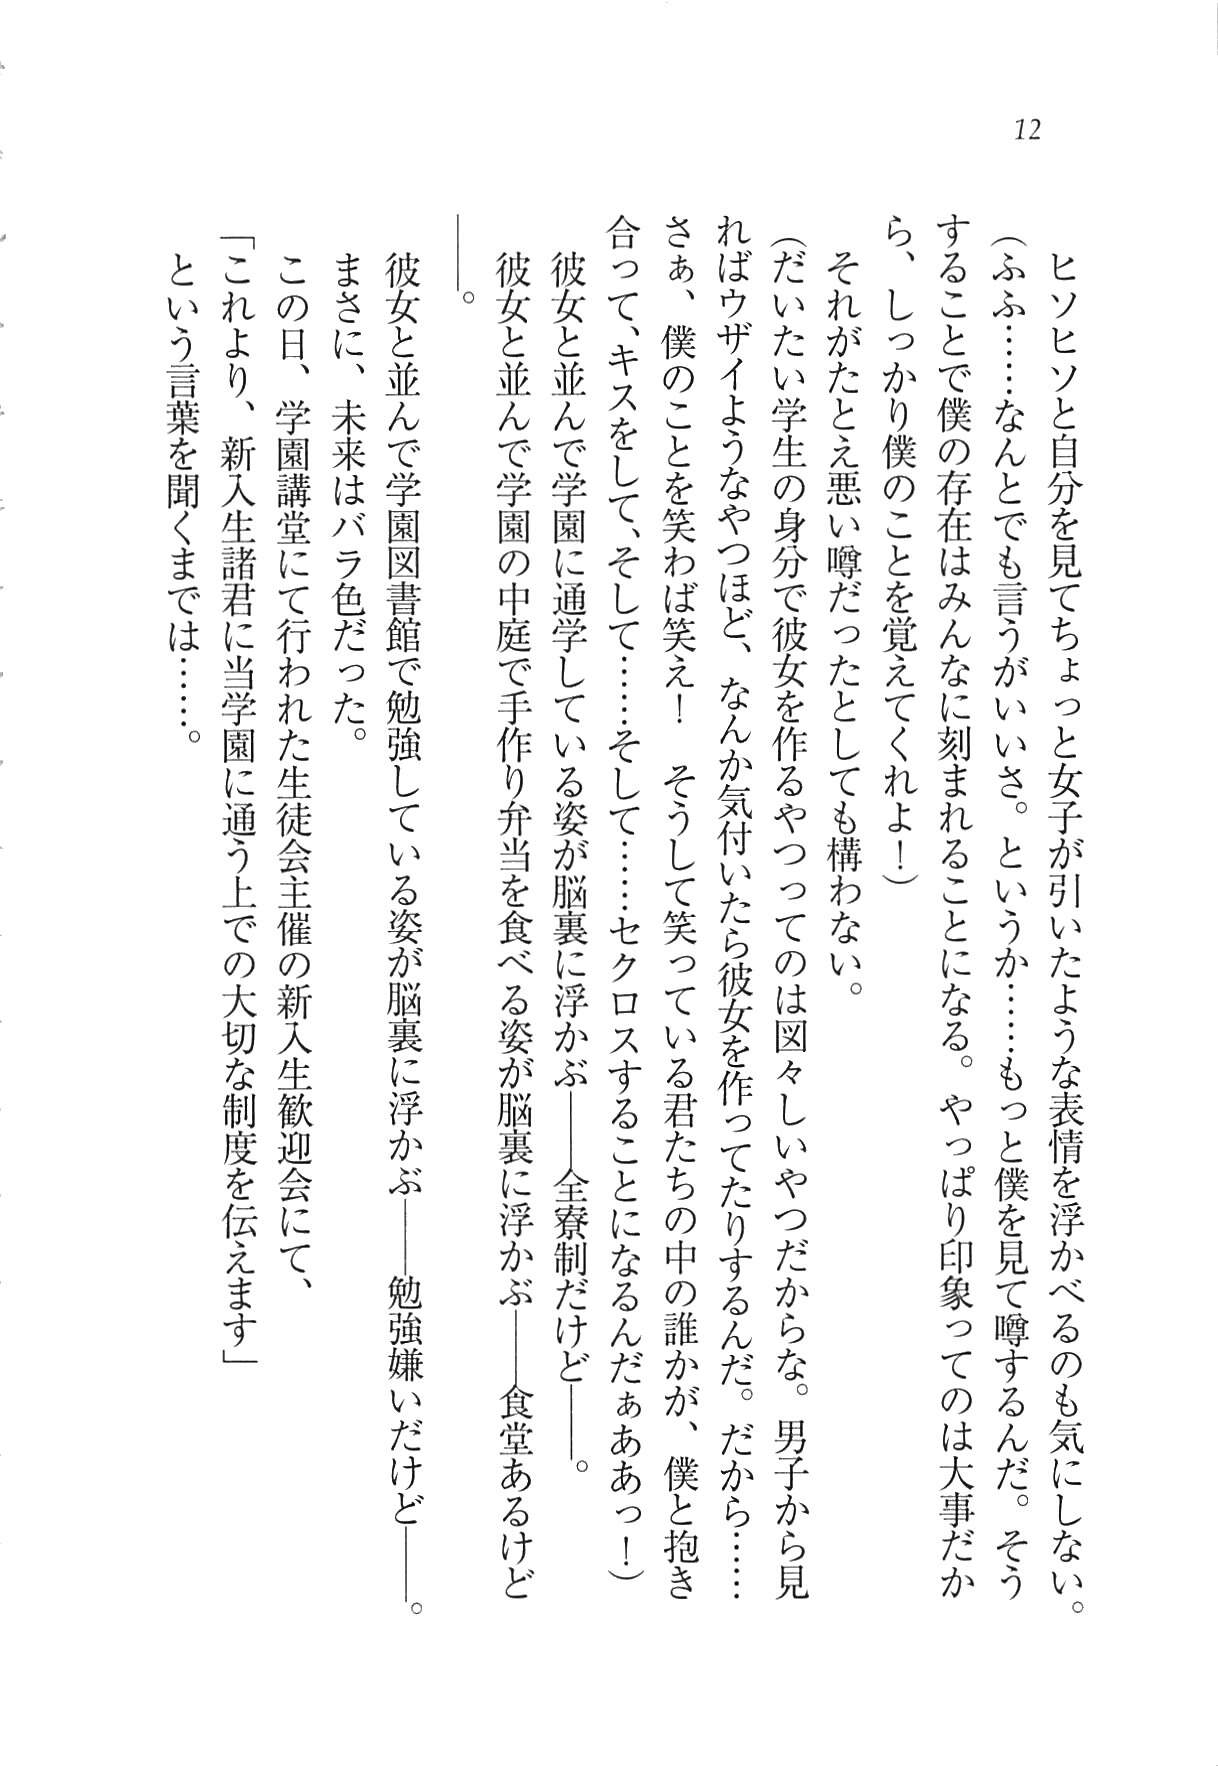 12
ヒソヒソと自分を見てちょっと女子が引いたような表情を浮かべるのも気にしない。
（ふふ……なんとでも言うがいいさ。というか……もっと僕を見て噂するんだ。そう
することで僕の存在はみんなに刻まれることになる。やっぱり印象ってのは大事だか
ら、しっかり僕のことを覚えてくれよ！）
それがたとえ悪い噂だったとしても構わない。
（だいたい学生の身分で彼女を作るやつってのは図々しいやつだからな。男子から見
ればウザイようなやつほど、なんか気付いたら彼女を作ってたりするんだ。だから……
さぁ、僕のことを笑わば笑え！　そうして笑っている君たちの中の誰かが、僕と抱き
合って、キスをして、そして……そして……セクロスすることになるんだぁああっ！）
彼女と並んで学園に通学している姿が脳裏に浮かぶ――全寮制だけど――。
彼女と並んで学園の中庭で手作り弁当を食べる姿が脳裏に浮かぶ――食堂あるけど
――。
彼女と並んで学園図書館で勉強している姿が脳裏に浮かぶ――勉強嫌いだけど――。
まさに、未来はバラ色だった。
この日、学園講堂にて行われた生徒会主催の新入生歓迎会にて、
「これより、新入生諸君に当学園に通う上での大切な制度を伝えます」
という言葉を聞くまでは……。